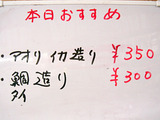 本日おすすめ
・アオリイカ造り ¥350
・鯛造り ¥300
タイ